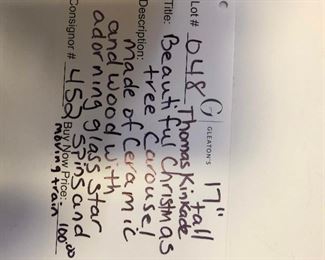 G
GLEATON'S
17"
tall
Lot # 648 Thomas Kinkade
Title: Beautiful Christmas
tree Carousel
Description: made of Ceramic
and wood with
adorning glass star
Spins and
Consignor # 458 Buy Now Price: 100.00
moving train